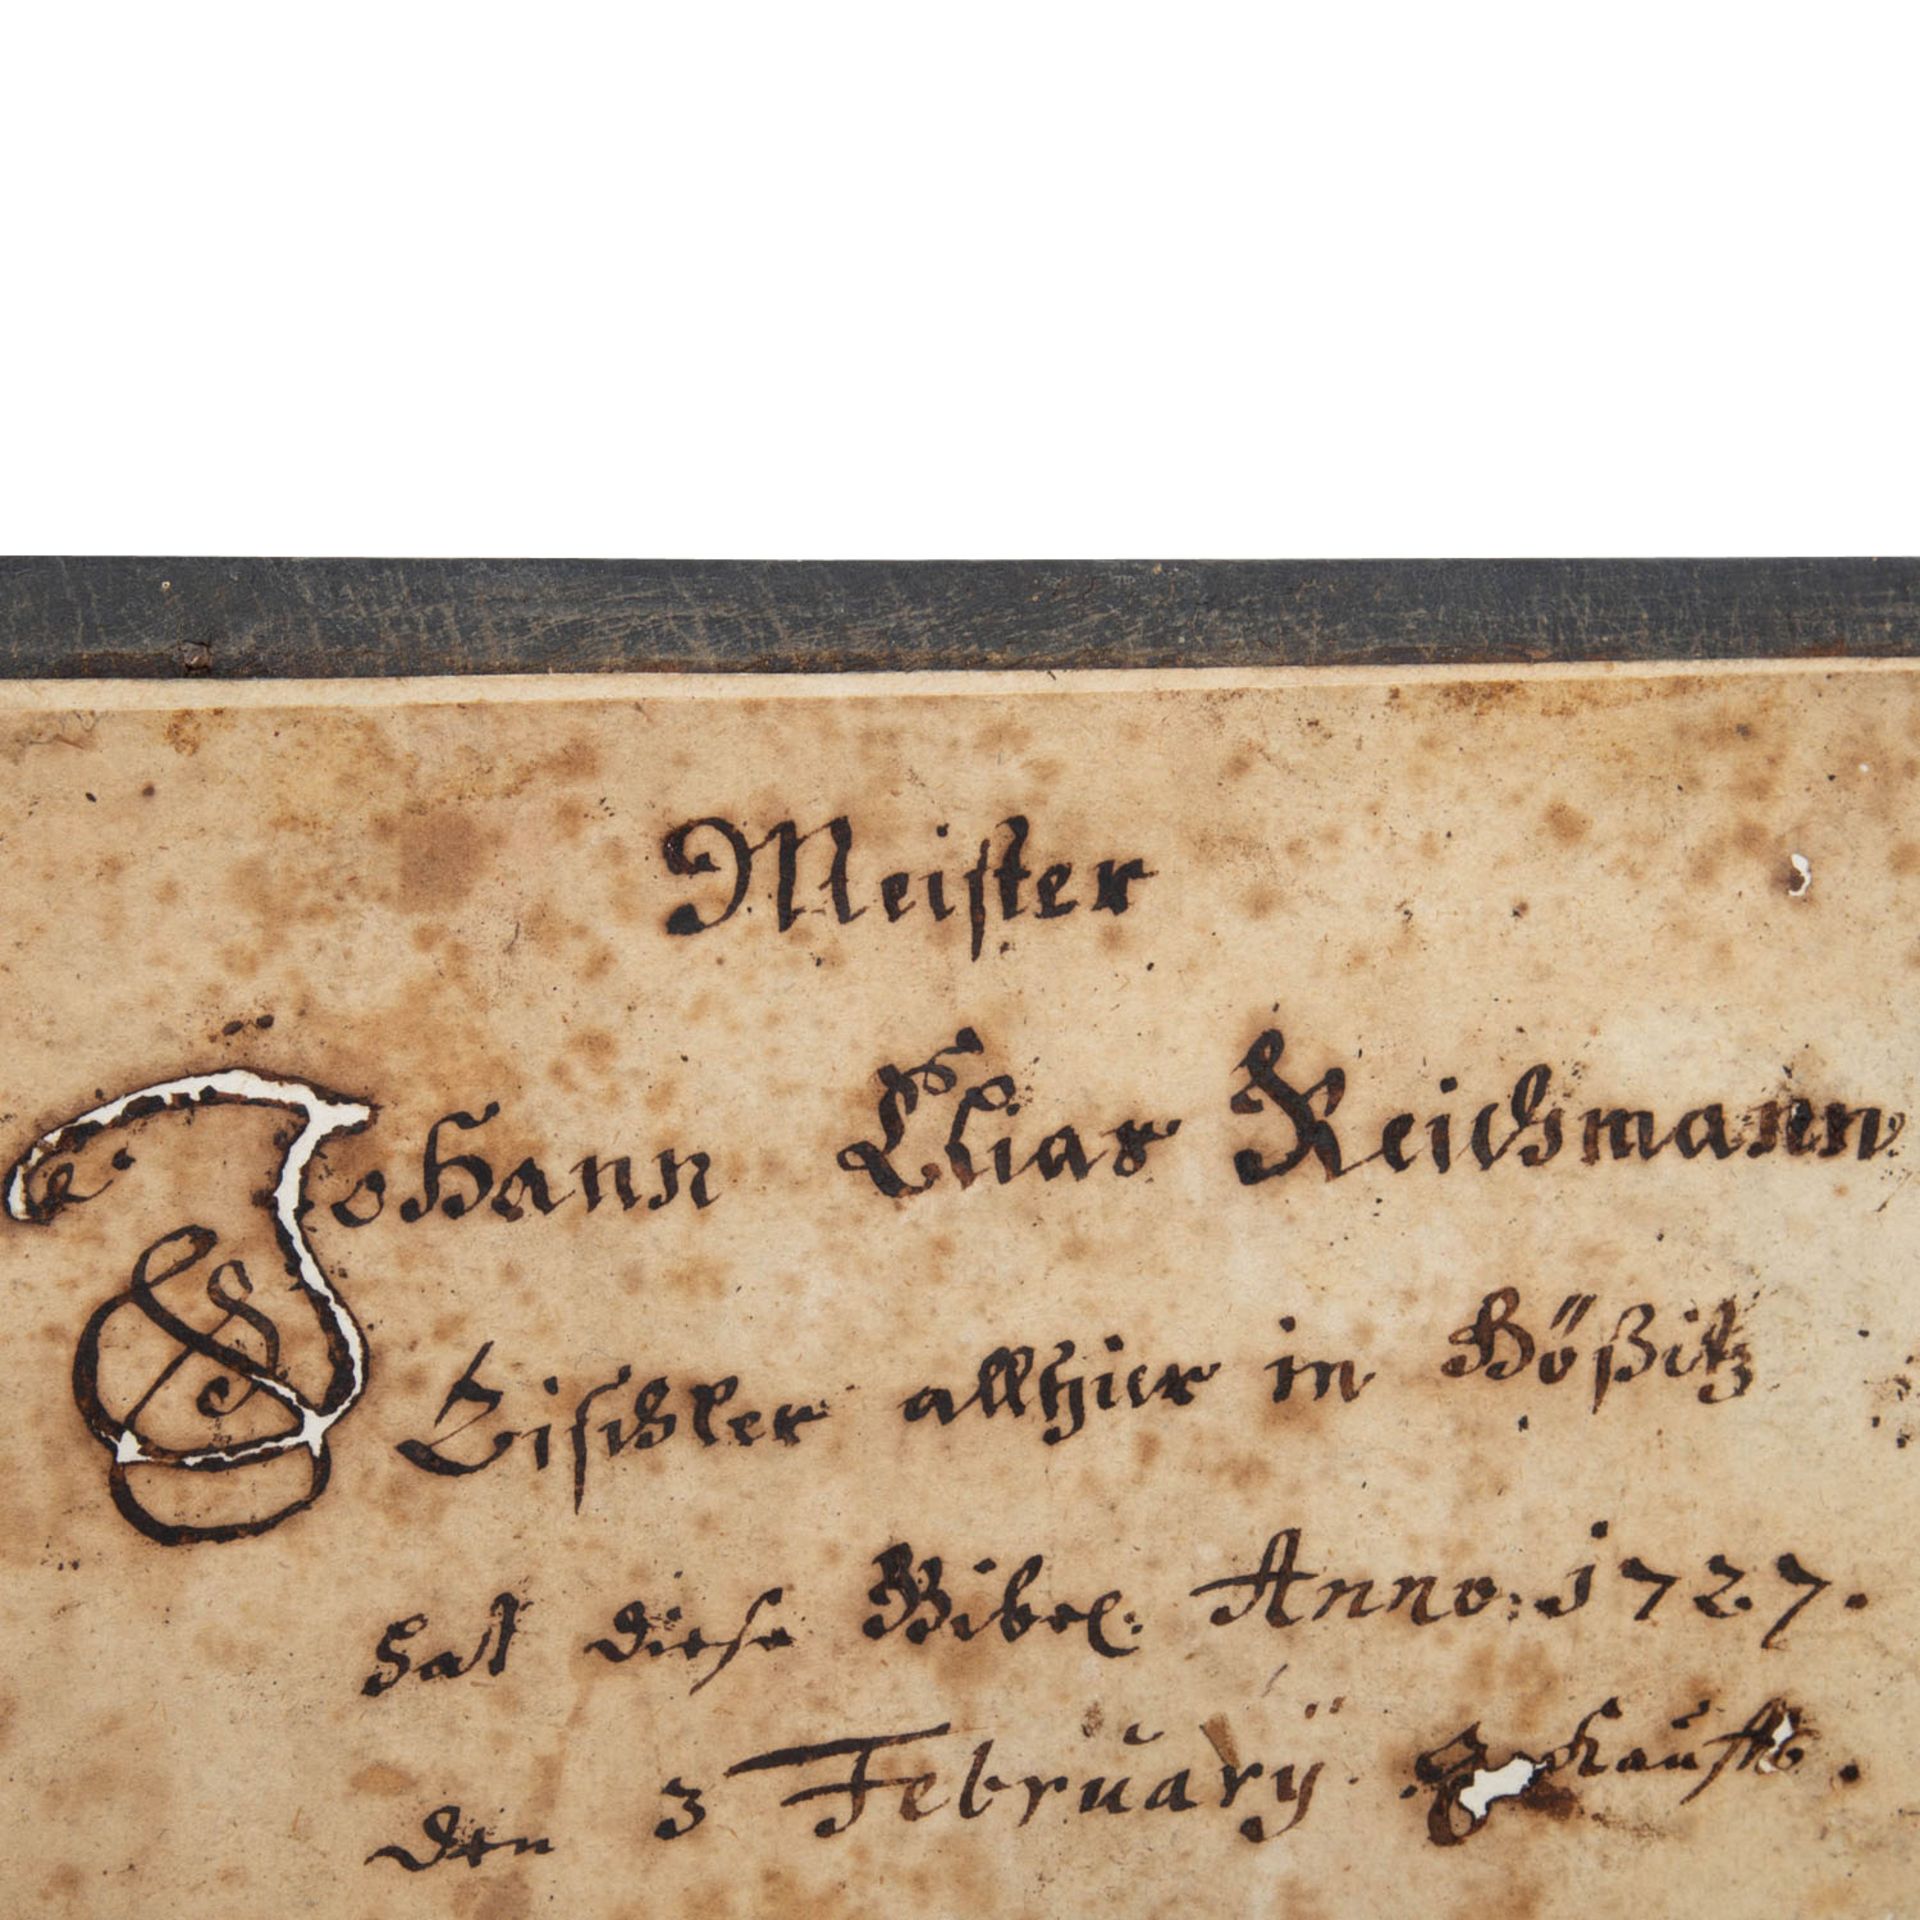 Meister
Johann Elias Reichmann
Tischler allhier in Bößitz
hat diese Bibel. Anno: 1727.
den 3 Februarÿ. gekaufft.